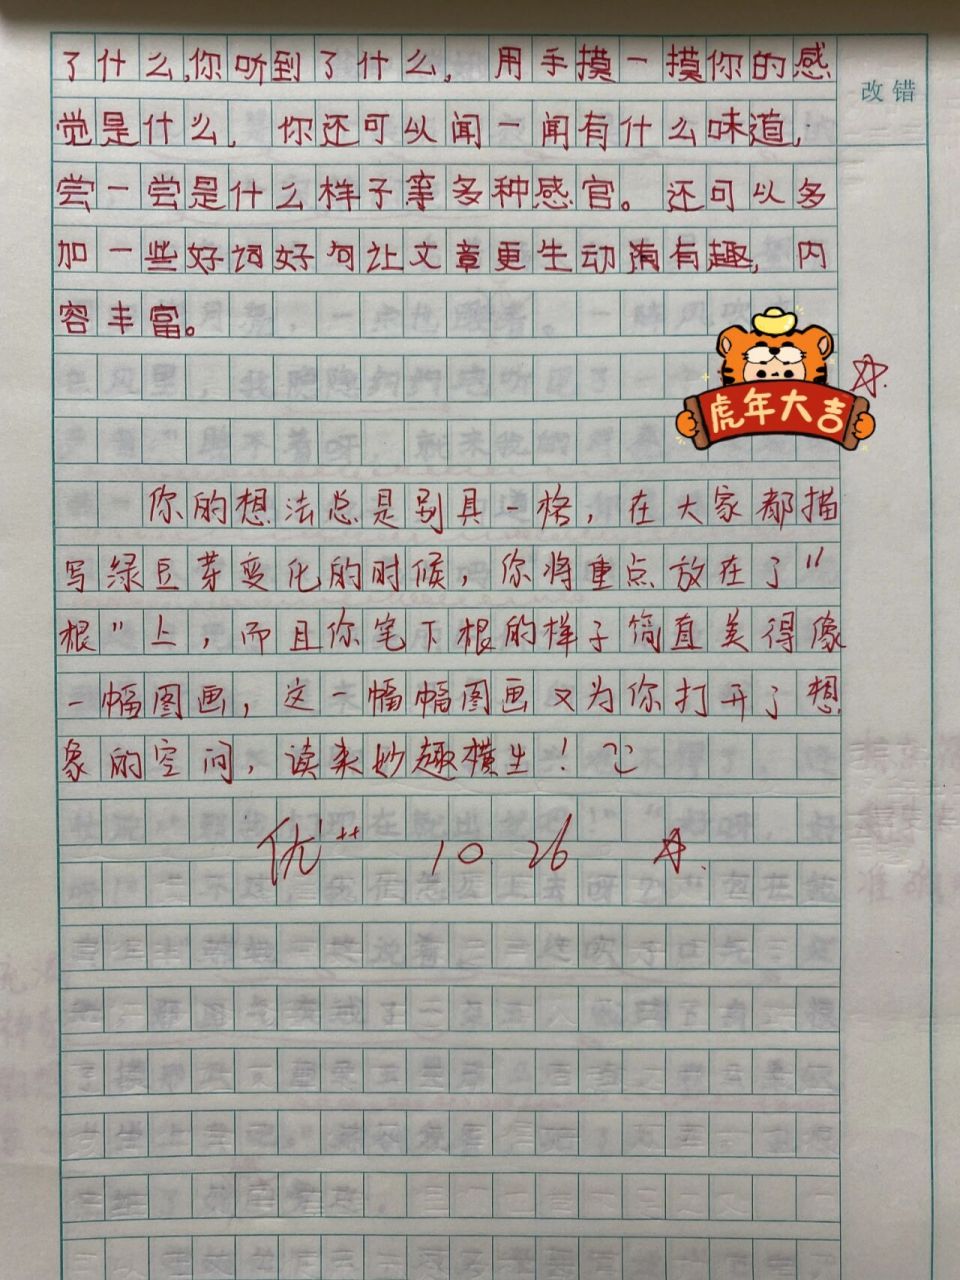 了什么,你听到了什么, 用手摸一摸你的感
改错
觉是什么, 你还可以闻一闻有什么味道,
尝一尝是什么样子等多种感官。还可以多
加一些好词好句让文章更生动有趣, 内
容丰富。
虎年大吉
你的想法总是别具一格,在大家都描
写绿豆芽变化的时候,你将重点放在了“
根”上,而且你笔下根的样子简直美得像
一幅图画,这一幅幅图画又为你打开了想
象的空间,读来妙趣横生!
优 10.26